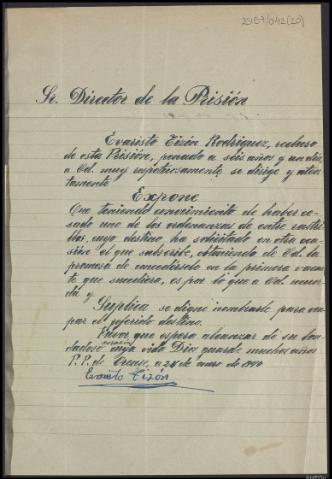 2987/042(20)
Sr. Director de la Prisión
Evaristo Tizón Rodriguez, recluso
de esta Prisión, penado a seis años y un dia,
a Vd. muy respetuosamente se dirige y aten
tamente
Expone
Que teniendo conocimiento de haber ce-
sado uno de los ordenanzas de estos rastri-
llos, cuyo destino ha solicitado en otra oca
sión el que subscribe, obteniendo de Vd. la
promesa de concedérselo en la primera vacan
te que sucediera, es por lo que a Vd.
y
Suplica se digne nombrarle para ocu
par el referido destino.
que espera alcanzar de su bon
dadoso corazón cuya vida Dios guarde muchos años
P.P. de Orense, a 24 de de 1940
Evaristo Tizón